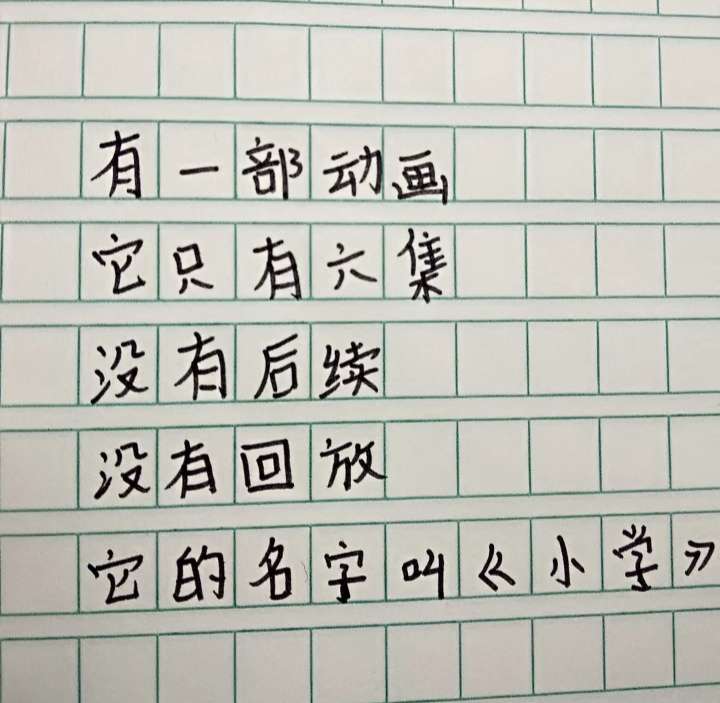 有一部动画
它只有六集
没有后续
没有回放
它的名字叫《小学》